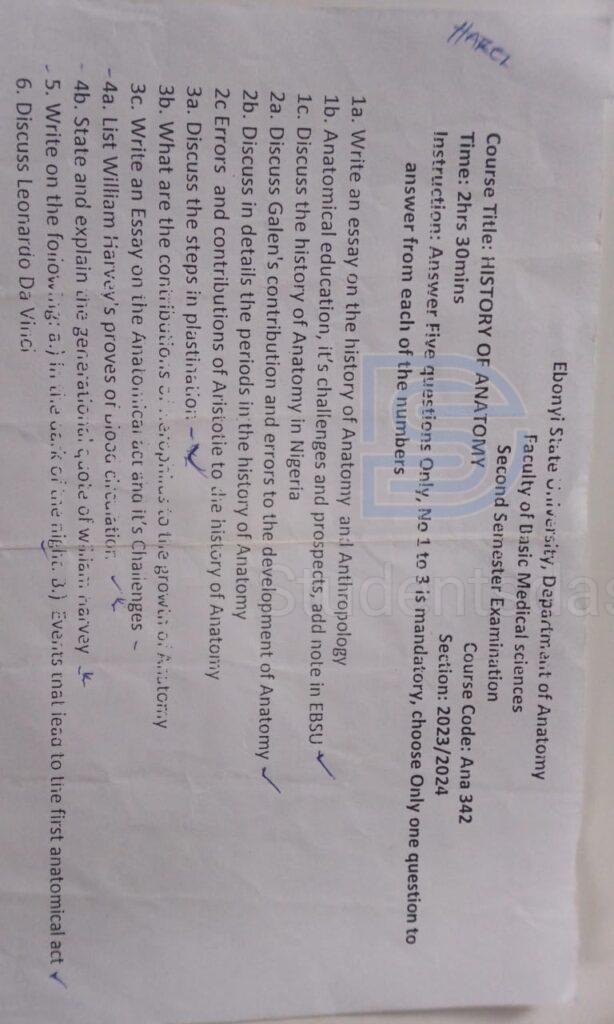 HARCL
Ebonyi State University, Department of Anatomy
Faculty of Basic Medical sciences
Second Semester Examination
Course Title: HISTORY OF ANATOMY Course Code: Ana 342
Time: 2hrs 30mins Section: 2023/2024
Instruction: Answer Five questions Only, No 1 to 3 is mandatory, choose Only one question to
answer from each of the numbers
1a. Write an essay on the history of Anatomy and Anthropology
1b. Anatomical education, it's challenges and prospects, add note in EBSU
1c. Discuss the history of Anatomy in Nigeria
2a. Discuss Galen's contribution and errors to the development of Anatomy
2b. Discuss in details the periods in the history of Anatomy
2c Errors and contributions of Aristotle to the history of Anatomy
3a. Discuss the steps in plastination
3b. What are the contributions of Herophilus to the growth of Anatomy
3c. Write an Essay on the Anatomical act and it's Challenges
4a. List William Harvey's proves of blood circulation
4b. State and explain the generational quote of William harvey
5. Write on the following: a.) in the dark of the night. B.) Events that lead to the first anatomical act
6. Discuss Leonardo Da Vinci
Student
as